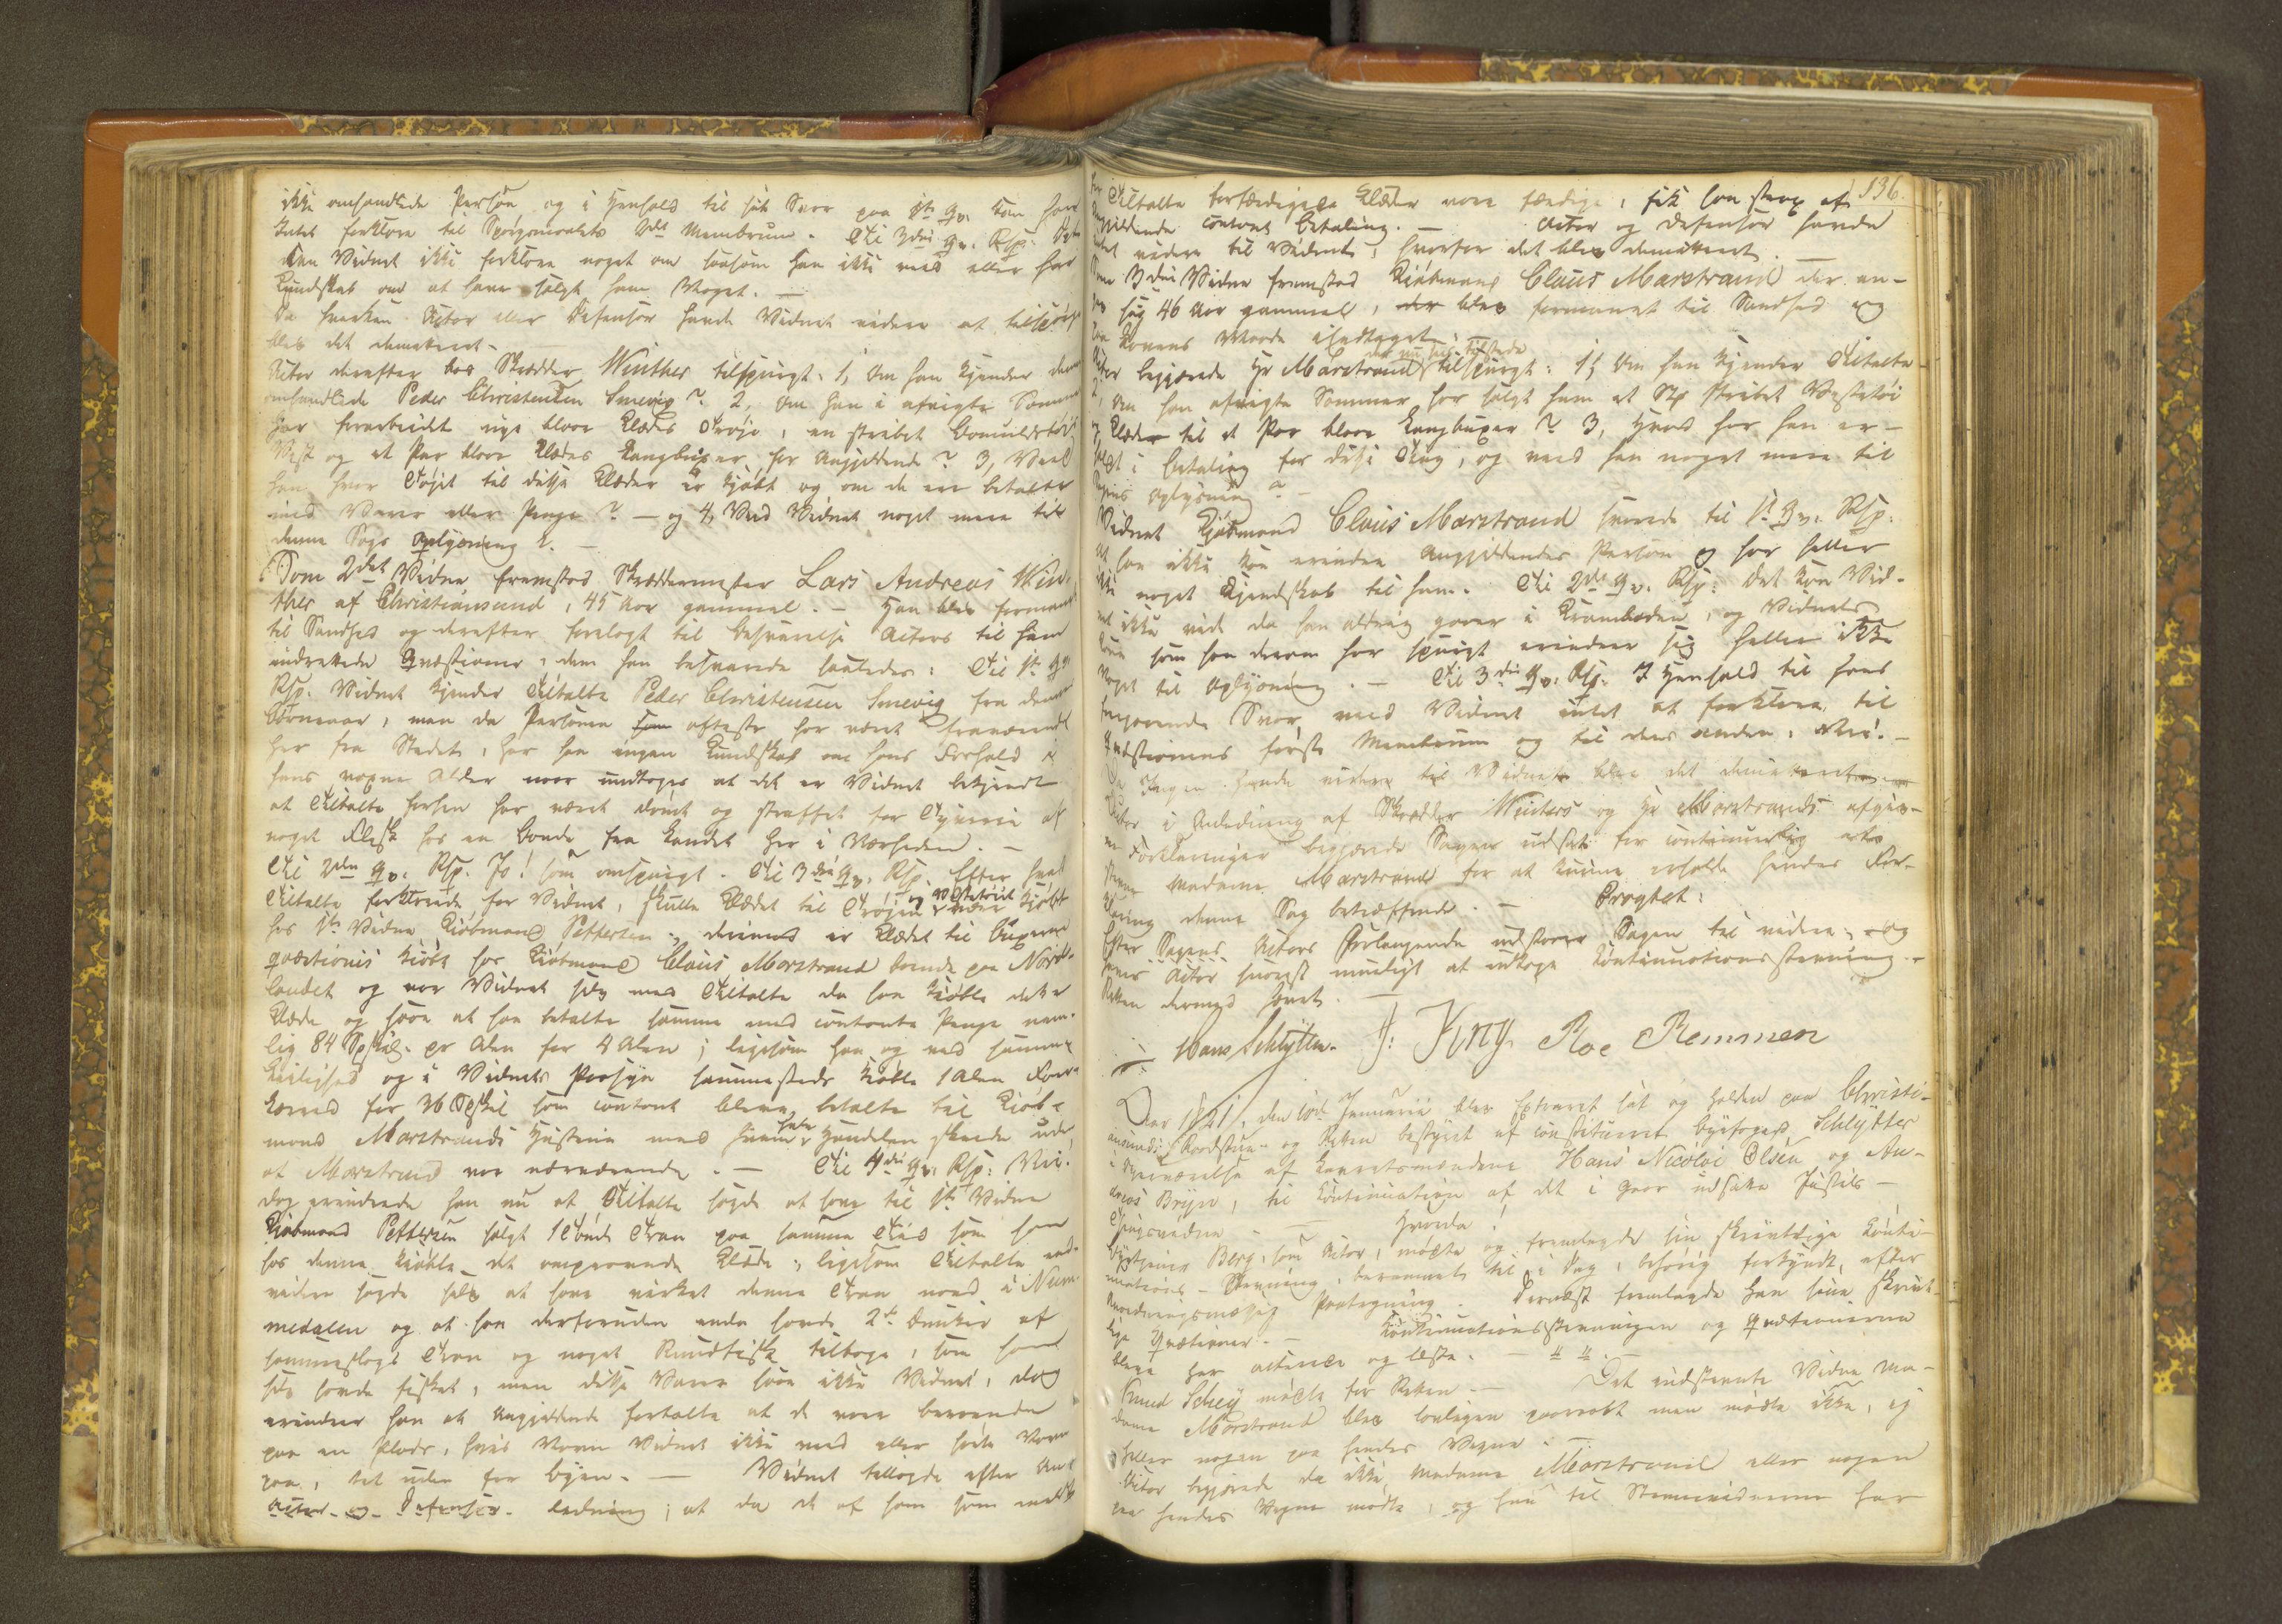 ikke omhandlede Person og i Henhold til sit Svar paa 1ste Qv. kan han
Intet forklare til Spørgsmaalets 2det Membrum. Til 3die Qv. Rsp. Dette
kan Vidnet ikke forklare noget om saasom han ikke veed eller har
Kundskab om at have solgt ham Noget. —
Da hverken Actor eller Defensor havde Vidnet videre at tilspørge
blev det demitteret.
Actor derefter Skrædder Winther tilspurgt: 1, Om han kjender den
omhandlede Peder Christensen Smevig? 2, Om han i afvigte Sommer
har forarbeidet nye blaae Klædes Trøje, en stribet Bomuldstøis
Vest og et Par blaae Klædes Langbuxer for Angjeldende? 3, Veed
han, hvor Tøjet til disse Klæder er kjøbt og om de ere betalte
med Varer eller Penge? — og 4, Veed Vidnet noget mere til
denne Sags Oplysning?. —
Som 2det Vidne fremstod Skræddermester Lars Andreas Win-
ther af Christiansund, 45 Aar gammel. — Han blev formanet
til Sandhed og derefter forelagt til Besvarelse Actors til ham
indrettede Qvæstioner, dem han besvarede saaledes: Til 1ste Qv.
Rsp. Vidnet kjender Tiltalte Peder Christensen Smevig fra dennes
Børneaar, men da Personen oftest har været fraværende
her fra Stedet, har han ingen Kundskab om hans Forhold i
hans voxne Alder naar undtages at det er Vidnet bekjendt
at Tiltalte forhen har været dømt og straffet for Tyverie af
noget Flesk hos en Bonde fra Landet her i Nærheden. —
Til 2den Qv. Rsp. Jo! som omspurgt. Til 3die Qv. Rsp. Efter hvad
Tiltalte forklarede for Vidnet, skulle Klædet til Trøjen og Vestetøiet være kjøbt
hos 1ste Vidne Kiøbmand Pettersen; derimod er Klædet til Buxerne
qvæstionis kiøbt hos Kiøbmand Claus Morstrand boende paa Nord-
landet og var Vidnet selv med Tiltalte da han kiøbte dette
Klæde og saae at han betalte samme med contante Penge nem-
lig 84 Spskil. pr Alen for 4 Alen; ligesom han og ved samme
Leilighed og i Vidnets Paasyn sammesteds kiøbte 1 Alen
for 36 Spskil som contant bleve betalte til Kiøb-
mand Morstrands Hustrue med hvem Handelen skeede uden
at Morstrand var nærværende. — Til 4de Qv. Rsp: Nei!
dog erindrede han nu at Tiltalte sagde at have til 1ste Vidne
Kiøbmand Pettersen solgt 1 Tønde Tran paa samme Tid som han
hos denne kiøbte det ommeldende Klæde; ligesom Tiltalte end-
videre sagde selv at have virket denne Tran nord i Num-
medalen og at han derforuden endnu havde 2de Dunker af
sammeslags Tran og noget Rundfisk tilbage, som han
selv havde fisket, men disse Varer saae ikke Vidnet, dog
erindrer han at Angjeldende fortalte at de vare beroende
paa en Plads, hvis Navn Vidnet ikke veed eller hørte Navn
paa, tæt uden for Byen. — Vidnet tillagde efter An-
Actor og Defensor ledning; at da de af ham som meldt
136.
for Tiltalte forfærdigede Klæder vare færdige, fik han strax af
Angjeldende contant Betaling. — Actor og Defensor havde
Intet videre til Vidnet, hvorfor det blev demitteret. —
Som 3die Vidne fremstod Kiøbmand Claus Morstrand der an-
gav sig 46 Aar gammel, der blev formanet til Sandhed og
Lovens Eed
Actor begjærede Hr Morstrand der nu her tilstede tilspurgt: 1, Om han kjender Tiltalte
2, Om han afvigte Sommer har solgt ham et Stk stribet Vestetøi
og Klæde til et Par blaae Langbuxer? 3, Hvad har han er-
holdt i Betaling for disse Ting, og veed han noget mere til
Sagens Oplysning? —
Vidnet Kjøbmand Claus Morstrand svarede til 1ste Qv. Rsp.
at han ikke kan erindre Angjeldendes Person og har heller
ikke noget Kjendskab til ham. Til 2de Qv. Rsp: Det kan Vid-
net ikke vide da han aldrig gaaer i Kramboden, og Vidnets
Kone som han derom har spurgt erindrer sig heller ikke
Noget til Oplysning. — Til 3die Qv. Rsp. I Henhold til hans
foregaaende Svar veed Vidnet intet at forklare til
Qvæstionens første Membrum og til dens anden, Nei! —
Da Ingen havde videre til Vidnet blev det demitteret. —
Actor i Anledning af Skrædder Winthers og Hr Morstrands afgiv-
ne Forklaringer begjærede Sagen udsat for continuerlig at
stevne Madame Morstrand for at kunne erholde hendes For-
klaring denne Sag betræffende. — Eragtet:
Efter Sagens Actors Forlangende udstaaer Sagen til videre; og
haver Actor snarest muligt at udtage Continuationsstevning.
Retten dermed hævet. —
Hans Schlytter. J. Kny Roe Remmen
Aar 1821, den 10de Januarii blev Extraret sat og holden paa Christi-
ansunds Raadstue og Retten bestyret af constitueret Byefoged Schlytter
i Overværelse af Laugrettesmændene Hans Nicolai Olsen og An-
dreas Bryn, til Continuation af det i Gaar udsatte Justits-
Thingsvidne — Hvorda!
Berg, som Actor, mødte og fremlagde sin skriftlige Conti-
nuations-Stevning, berammet til i Dag, behørig forkyndt, efter
Anordningsmæssig Paategning. Dernæst fremlagde han sine skrift-
lige Qvæstioner. — Continuationsstevningen og Qvæstionerne
bleve her acterede og læste. — " " —
Knud Schey mødte for Retten. — Det indstevnte Vidne Ma-
dame Morstrand blev lovligen paaraabt men mødte ikke, ej
heller nogen paa hendes Vegne. —
Actor begjærede da ikke Madame Morstrand eller nogen
paa hendes Vegne mødte, og hun til Stevnevidnerne har